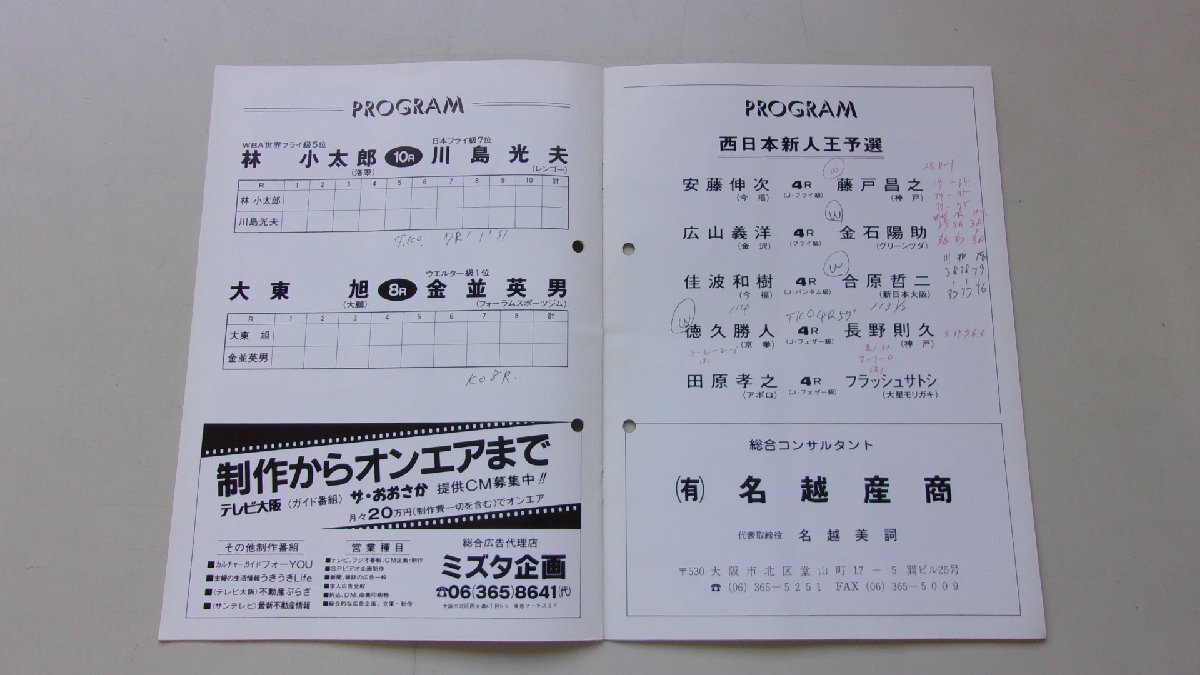 PROGRAM
WBA世界フライ級5位
日本フライ級7位
林 小太郎 10R 川島光夫
(洛翠) (レンゴー)
R 1 2 3 4 5 6 7 8 9 10 計
林 小太郎
川島光夫
T.KO. 7R 1'51
ウエルター級1位
大東 旭 8R 金並英男
(大鵬) (フォーラムスポーツジム)
R 1 2 3 4 5 6 7 8 計
大東 旭
金並英男
KO 8R.
制作からオンエアまで
テレビ大阪〈ガイド番組〉ザ・おおさか 提供CM募集中!!
月々20万円(制作費一切を含む)でオンエア
その他制作番組
■カルチャーガイドフォーYOU
■主婦の生活情報うきうきLife
■(テレビ大阪)不動産ぷらざ
■(サンテレビ)最新不動産情報
営業種目
■テレビ、ラジオ番組、CM企画・制作
■SPビデオ企画制作
■新聞、雑誌の広告一般
■求人広告全般
■折込、D.M.、商業印刷物
■総合的な広告企画、立案・制作
総合広告代理店
ミズタ企画
☎06(365)8641(代)
PROGRAM
西日本新人王予選
安藤伸次 4R 藤戸昌之
(今福) (J・フライ級) (神戸)
広山義洋 4R 金石陽助
(金沢) (フライ級) (グリーンツダ)
佳波和樹 4R 合原哲二
(今福) (J・バンタム級) (新日本大阪)
114 TKO 4R 59" 113½
徳久勝人 4R 長野則久
(京拳) (J・フェザー級) (神戸)
田原孝之 4R フラッシュサトシ
(アポロ) (J・フェザー級) (大星モリガキ)
総合コンサルタント
(有) 名越産商
代表取締役 名越美詞
〒530 大阪市北区堂山町17-5 巽ビル25号
☎(06)365-5251 FAX(06)365-5009